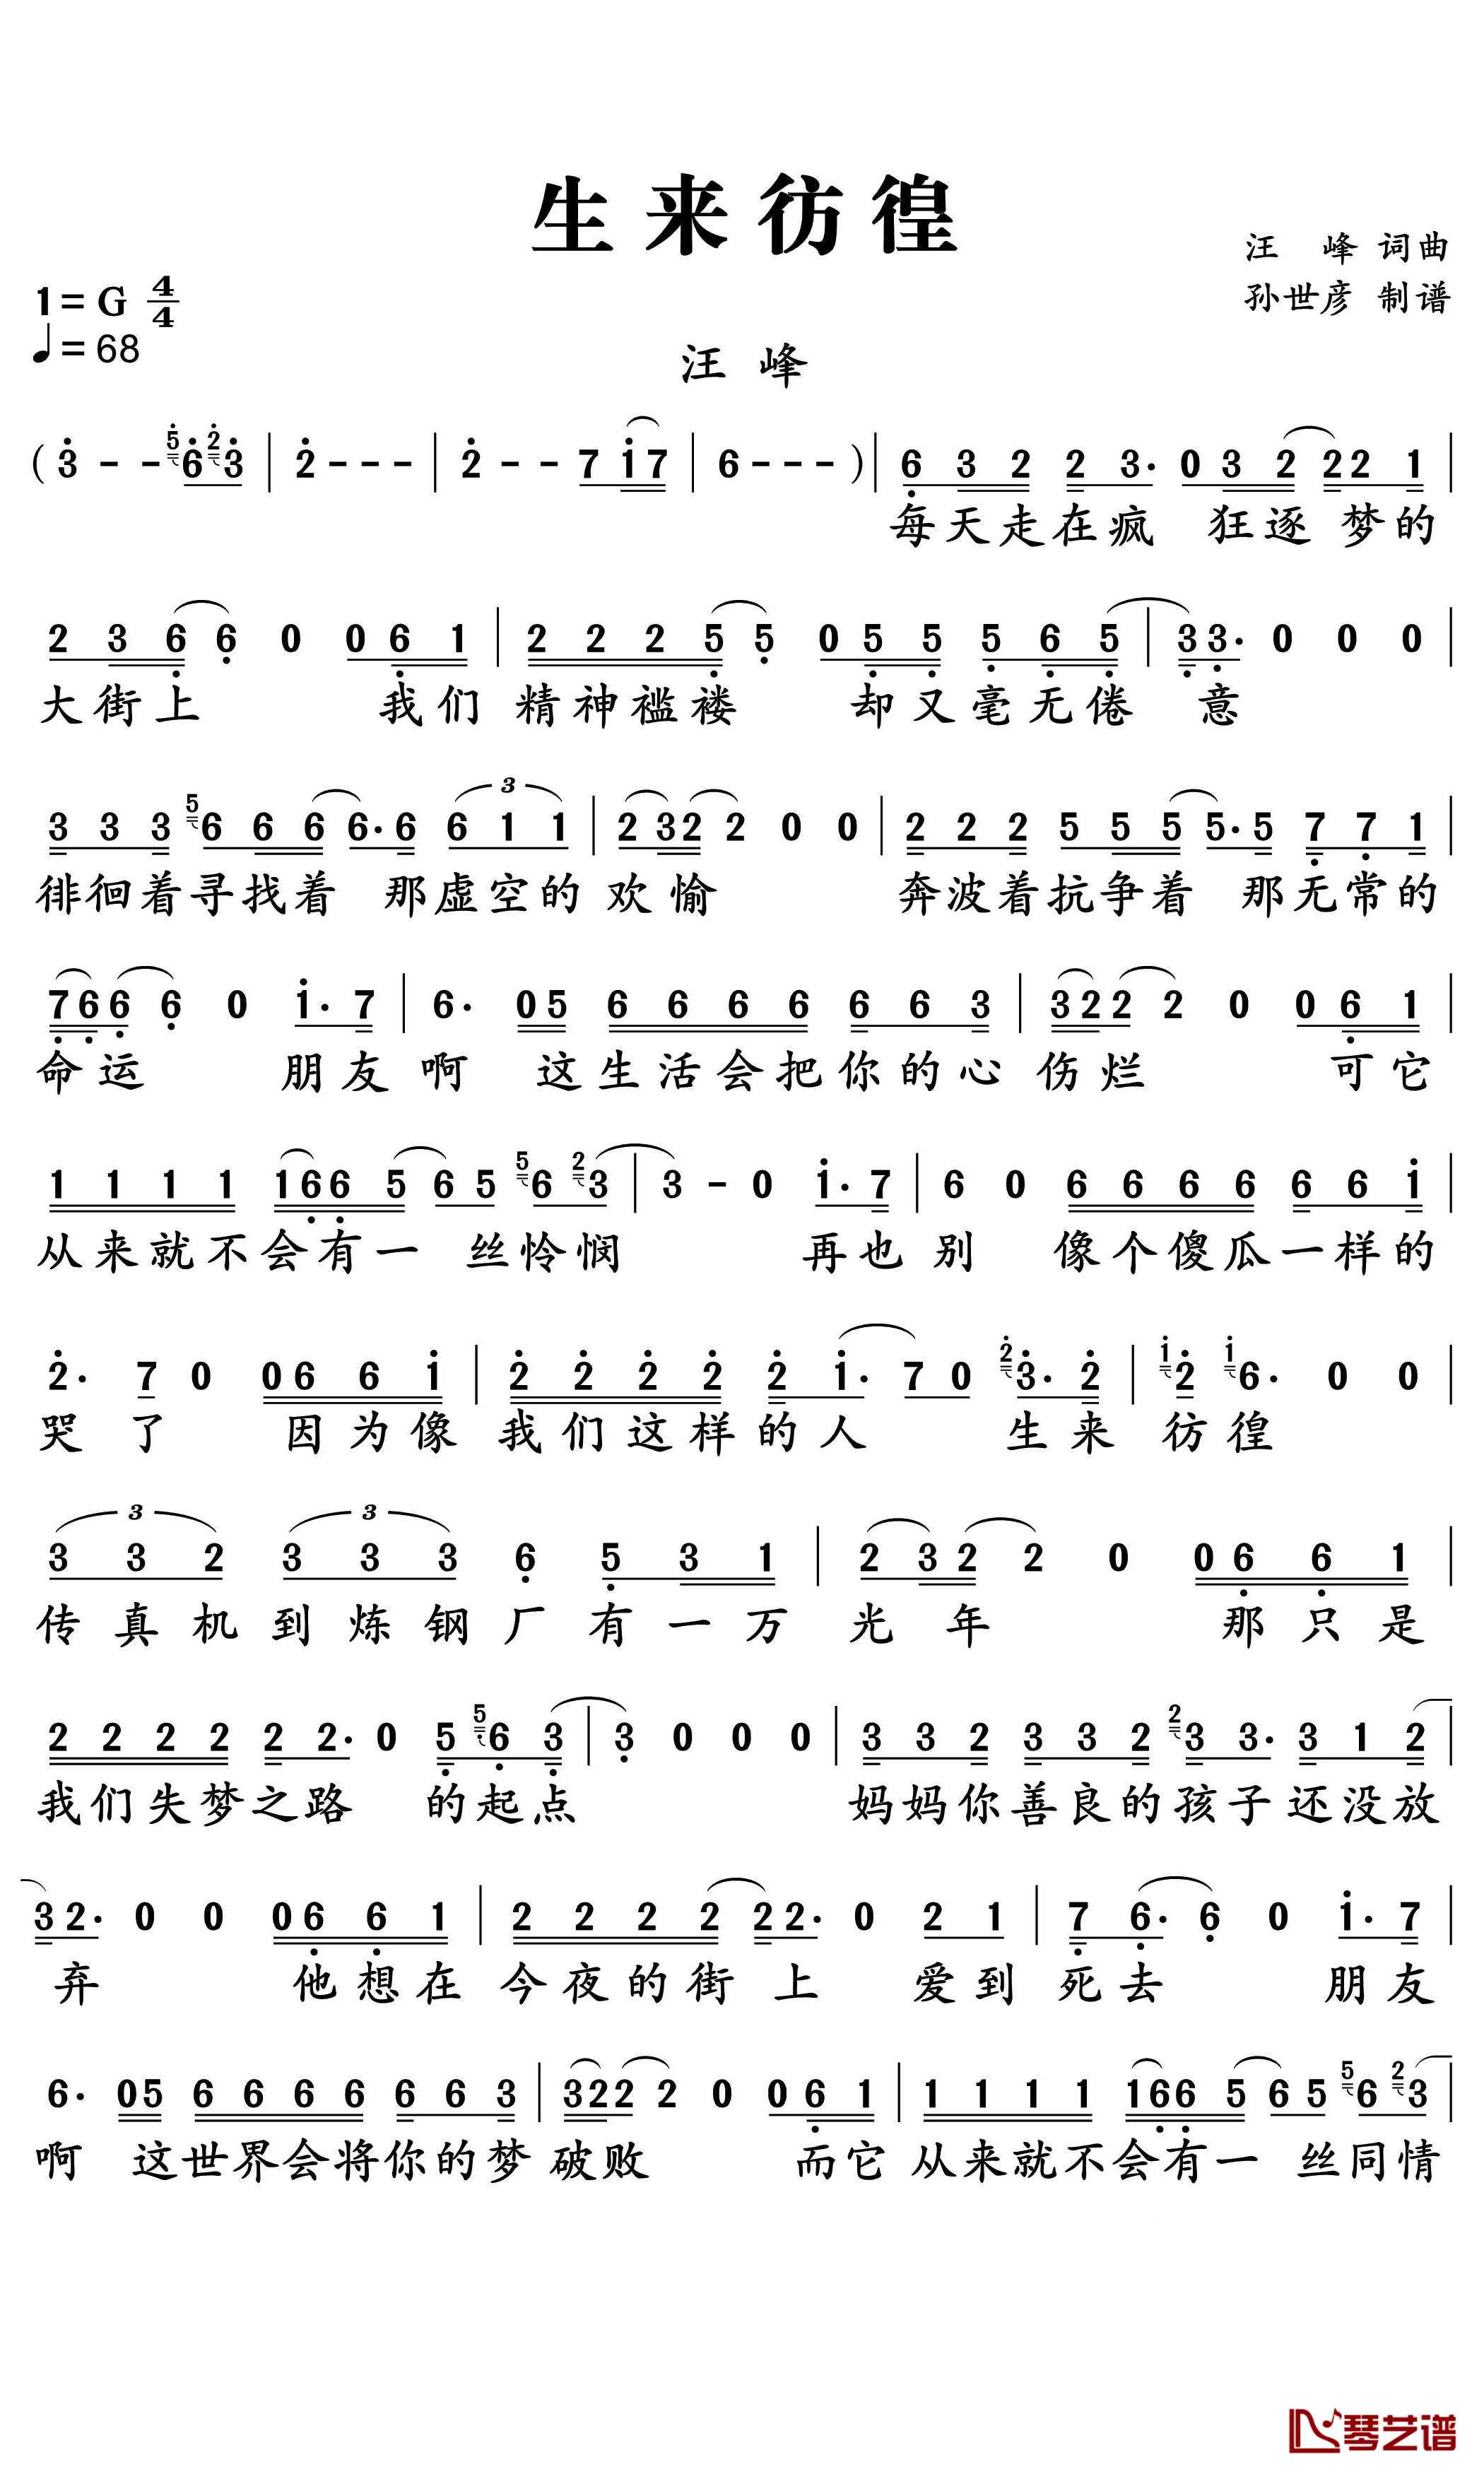 生来彷徨
汪 峰 词曲
孙世彦 制谱
1=G 4/4
♩=68
汪 峰
( 3 - - 5 6 2 3 | 2 - - - | 2 - - 7 1 7 | 6 - - - ) | 6 3 2 2 3. 0 3 2 2 2 1 |
每天走在疯 狂逐 梦的
2 3 6 6 0 0 6 1 | 2 2 2 5 5 0 5 5 5 6 5 | 3 3. 0 0 0 |
大街上 我们 精神褴褛 却又毫无倦 意
3 3 3 5 6 6 6 6. 6 3 6 1 1 | 2 3 2 2 0 0 | 2 2 2 5 5 5 5. 5 7 7 1 |
徘徊着寻找着 那虚空的 欢愉 奔波着抗争着 那无常的
7 6 6 6 0 1. 7 | 6. 0 5 6 6 6 6 6 6 3 | 3 2 2 2 0 0 6 1 |
命运 朋友 啊 这生活会把你的心 伤烂 可它
1 1 1 1 1 6 6 5 6 5 5 6 2 3 | 3 - 0 1. 7 | 6 0 6 6 6 6 6 6 1 |
从来就不会有一 丝怜悯 再也 别 像个傻瓜一样的
2. 7 0 0 6 6 1 | 2 2 2 2 2 1. 7 0 2 3. 2 | 1 2 1 6. 0 0 |
哭了 因为像 我们这样的人 生来 彷徨
3 3 3 2 3 3 3 3 6 5 3 1 | 2 3 2 2 0 0 6 6 1 |
传真机 到炼钢厂 有一万 光年 那只是
2 2 2 2 2 2. 0 5 5 6 3 | 3 0 0 0 | 3 3 2 3 3 2 2 3 3. 3 1 2 |
我们失梦之路 的起点 妈妈你善良的孩子还没放
3 2. 0 0 0 6 6 1 | 2 2 2 2 2 2. 0 2 1 | 7 6. 6 0 1. 7 |
弃 他想在 今夜的街上 爱到 死去 朋友
6. 0 5 6 6 6 6 6 6 3 | 3 2 2 2 0 0 6 1 | 1 1 1 1 1 6 6 5 6 5 5 6 2 3 |
啊 这世界会将你的梦 破败 而它 从来就不会有一 丝同情
琴艺谱